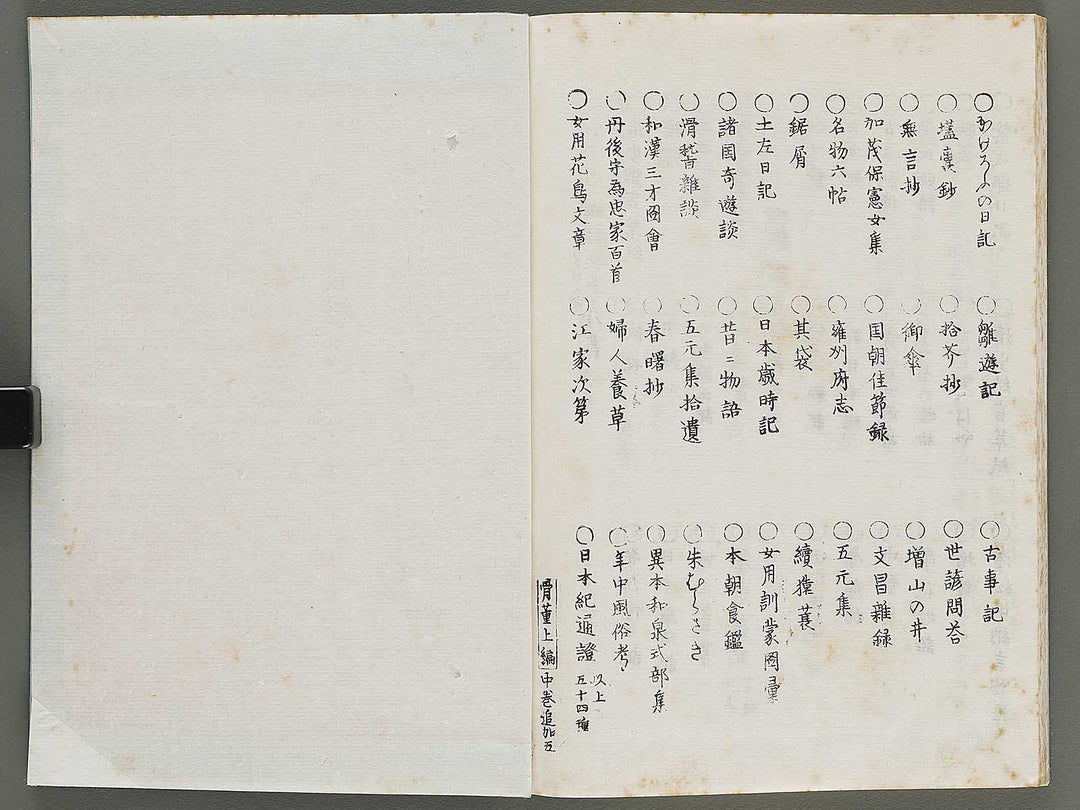 ○かげろふの日記 ○雛遊記 ○古事記
○壒囊鈔 ○拾芥抄 ○世諺問荅
○無言抄 ○御傘 ○増山の井
○加茂保憲女集 ○国朝佳節録 ○文昌雜録
○名物六帖 ○雍州府志 ○五元集
○鋸屑 ○其袋 ○續猿蓑
○土左日記 ○日本歳時記 ○女用訓蒙圖彙
○諸国奇遊談 ○昔〻物語 ○本朝食鑑
○滑稽雜談 ○五元集拾遺 ○朱むらさき
○和漢三才圖會 ○春曙抄 ○異本和泉式部集
○丹後守為忠家百首 ○婦人養草 ○年中風俗考
○女用花鳥文章 ○江家次第 ○日本紀通證 以上五十四種
骨董上編中巻追加五